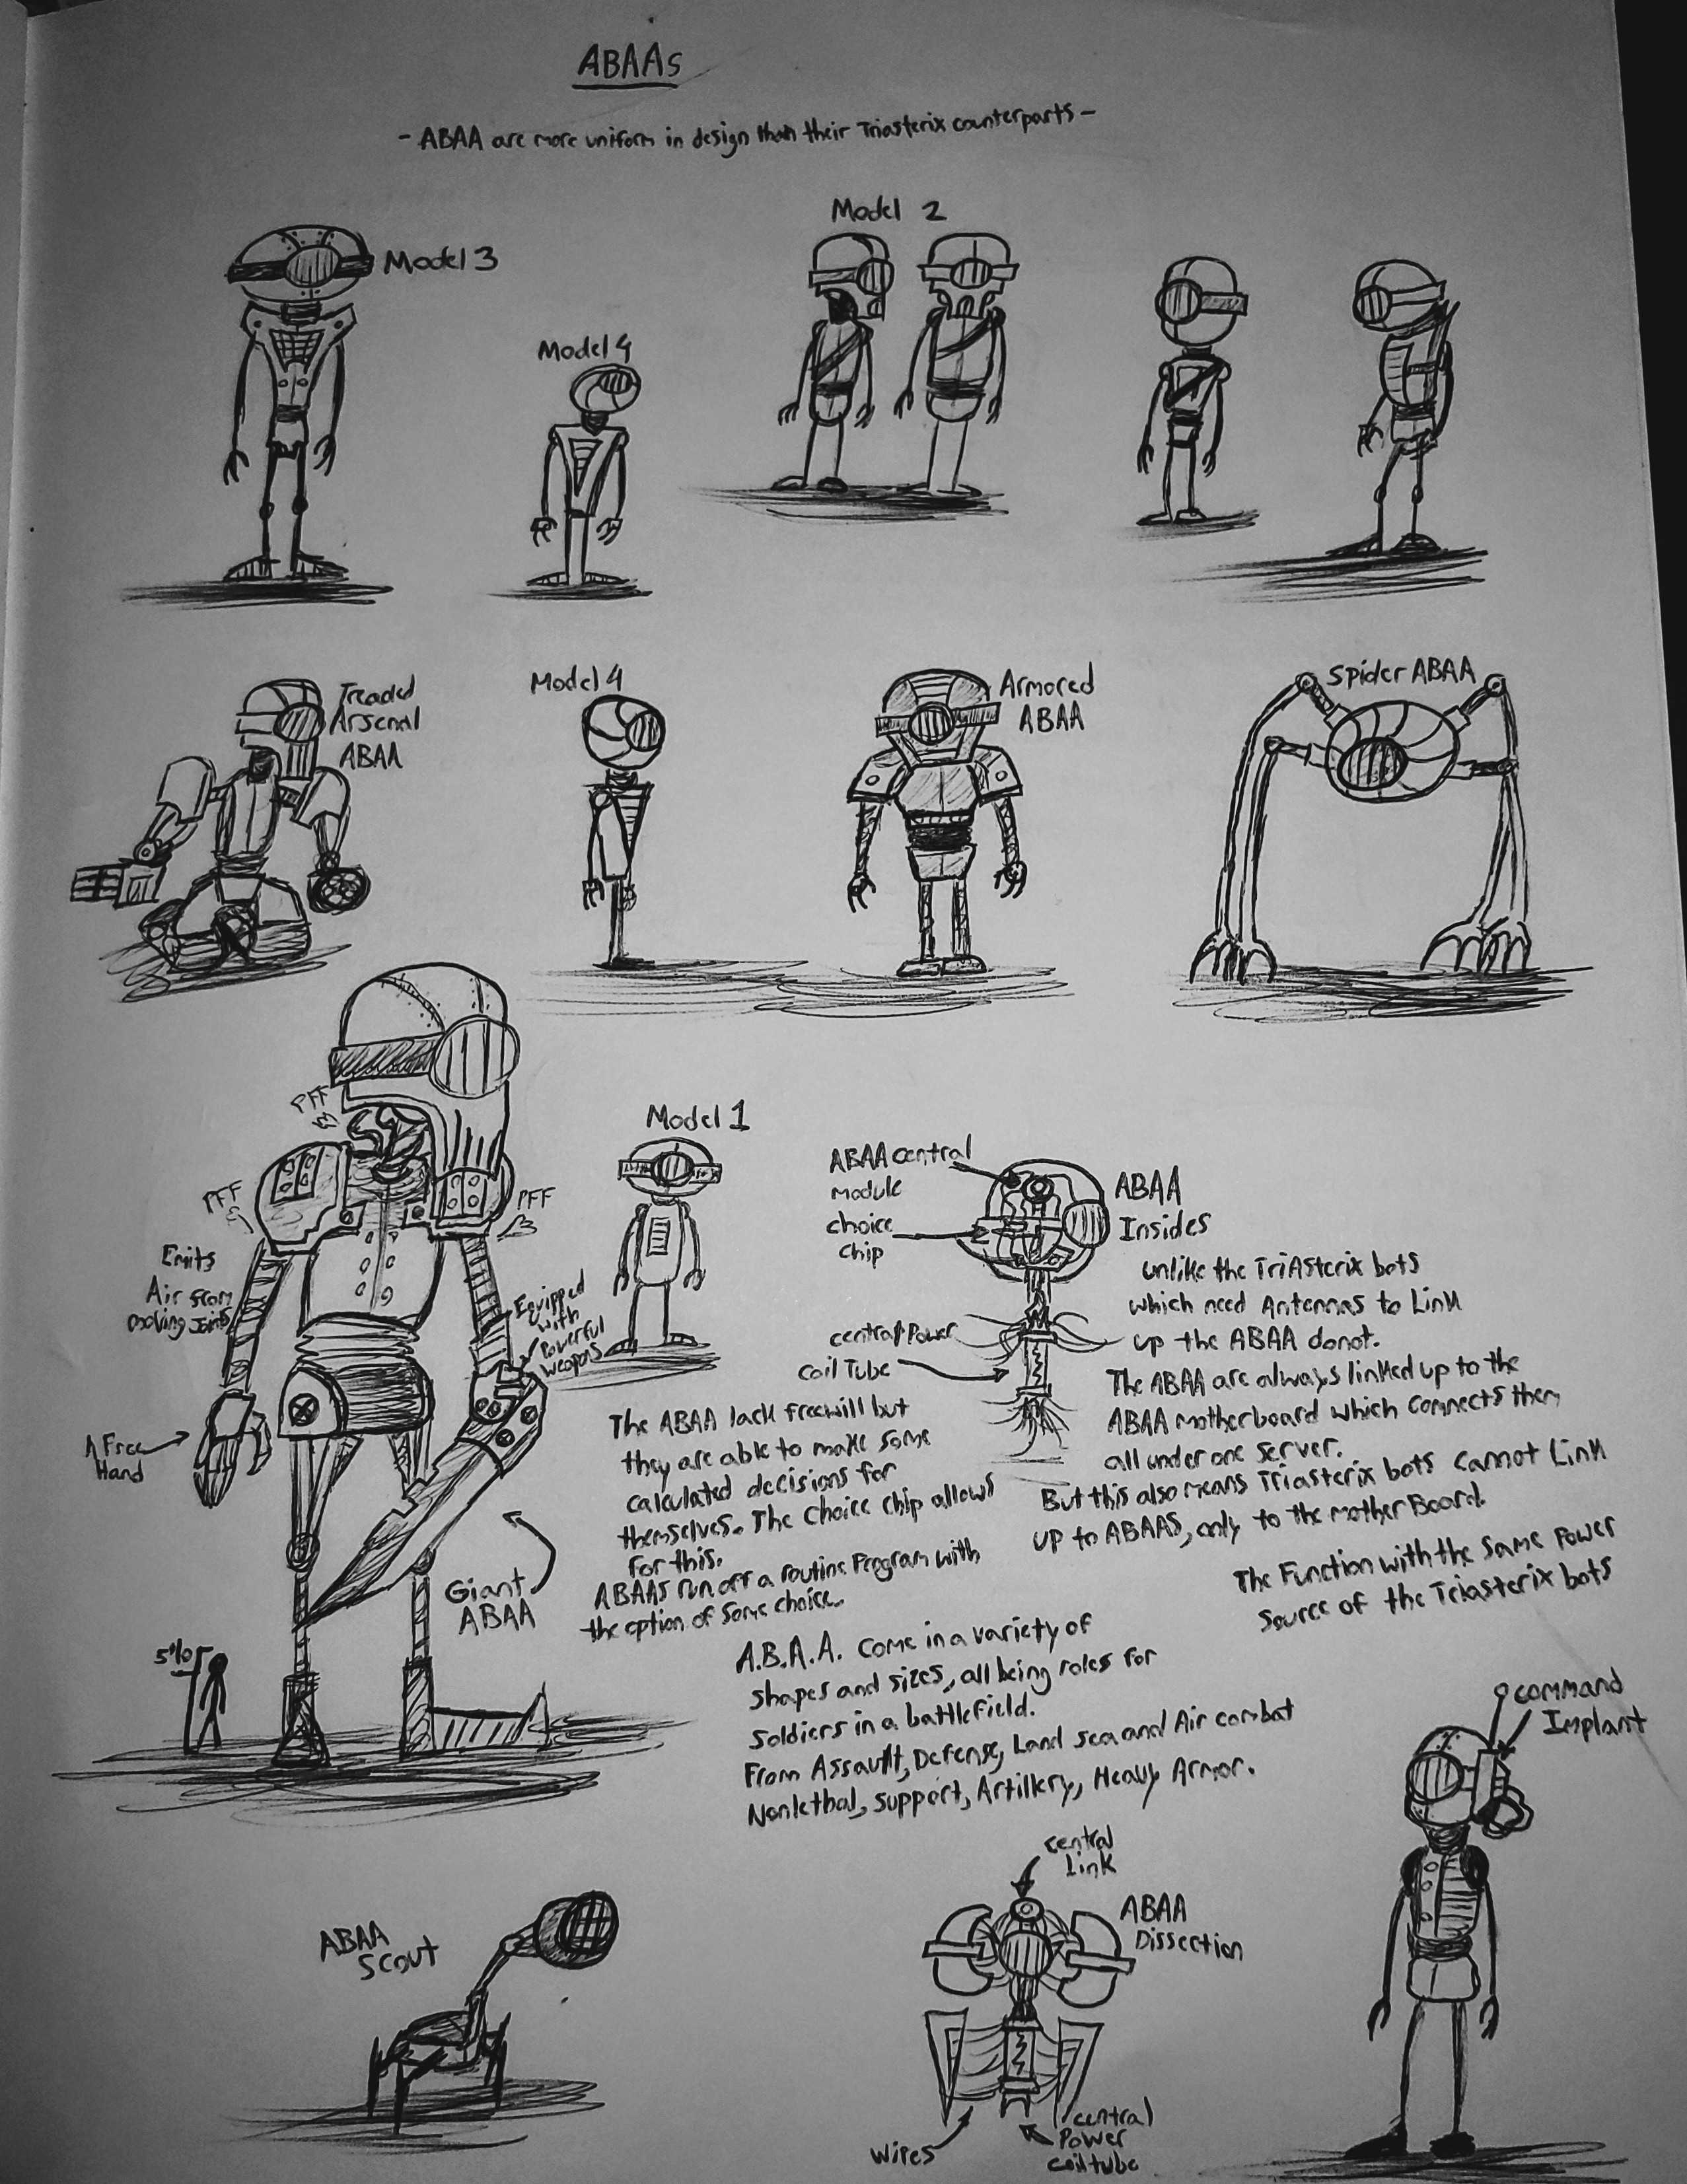 ABAAs
- ABAA are more uniform in design than their Triasterix counterparts -
Model 3
Model 4
Model 2
Treaded
Arsenal
ABAA
Model 4
Armored
ABAA
Spider ABAA
PFF
PFF
PFF
Emits
Air from
moving Joints
Equipped
with
Powerful
weapons
A Free
Hand
Giant
ABAA
Model 1
ABAA central
module
choice
chip
ABAA
Insides
central Power
coil Tube
unlike the TriAsterix bots
which need Antennas to Link
up the ABAA donot.
The ABAA are always linked up to the
ABAA motherboard which connects them
all under one server.
But this also means Triasterix bots cannot Link
up to ABAAS, only to the mother Board.
The Function with the same power
source of the Triasterix bots
The ABAA lack freewill but
they are able to make some
calculated decisions for
themselves. The choice chip allows
for this.
ABAAs run off a routine Program with
the option of some choice.
A.B.A.A. come in a variety of
shapes and sizes, all being roles for
soldiers in a battlefield.
From Assault, Defense, Land sea and Air combat
Nonlethal, support, Artillery, Heavy Armor.
command
Implant
ABAA
Scout
central
Link
ABAA
Dissection
wires
central
Power
coiltube